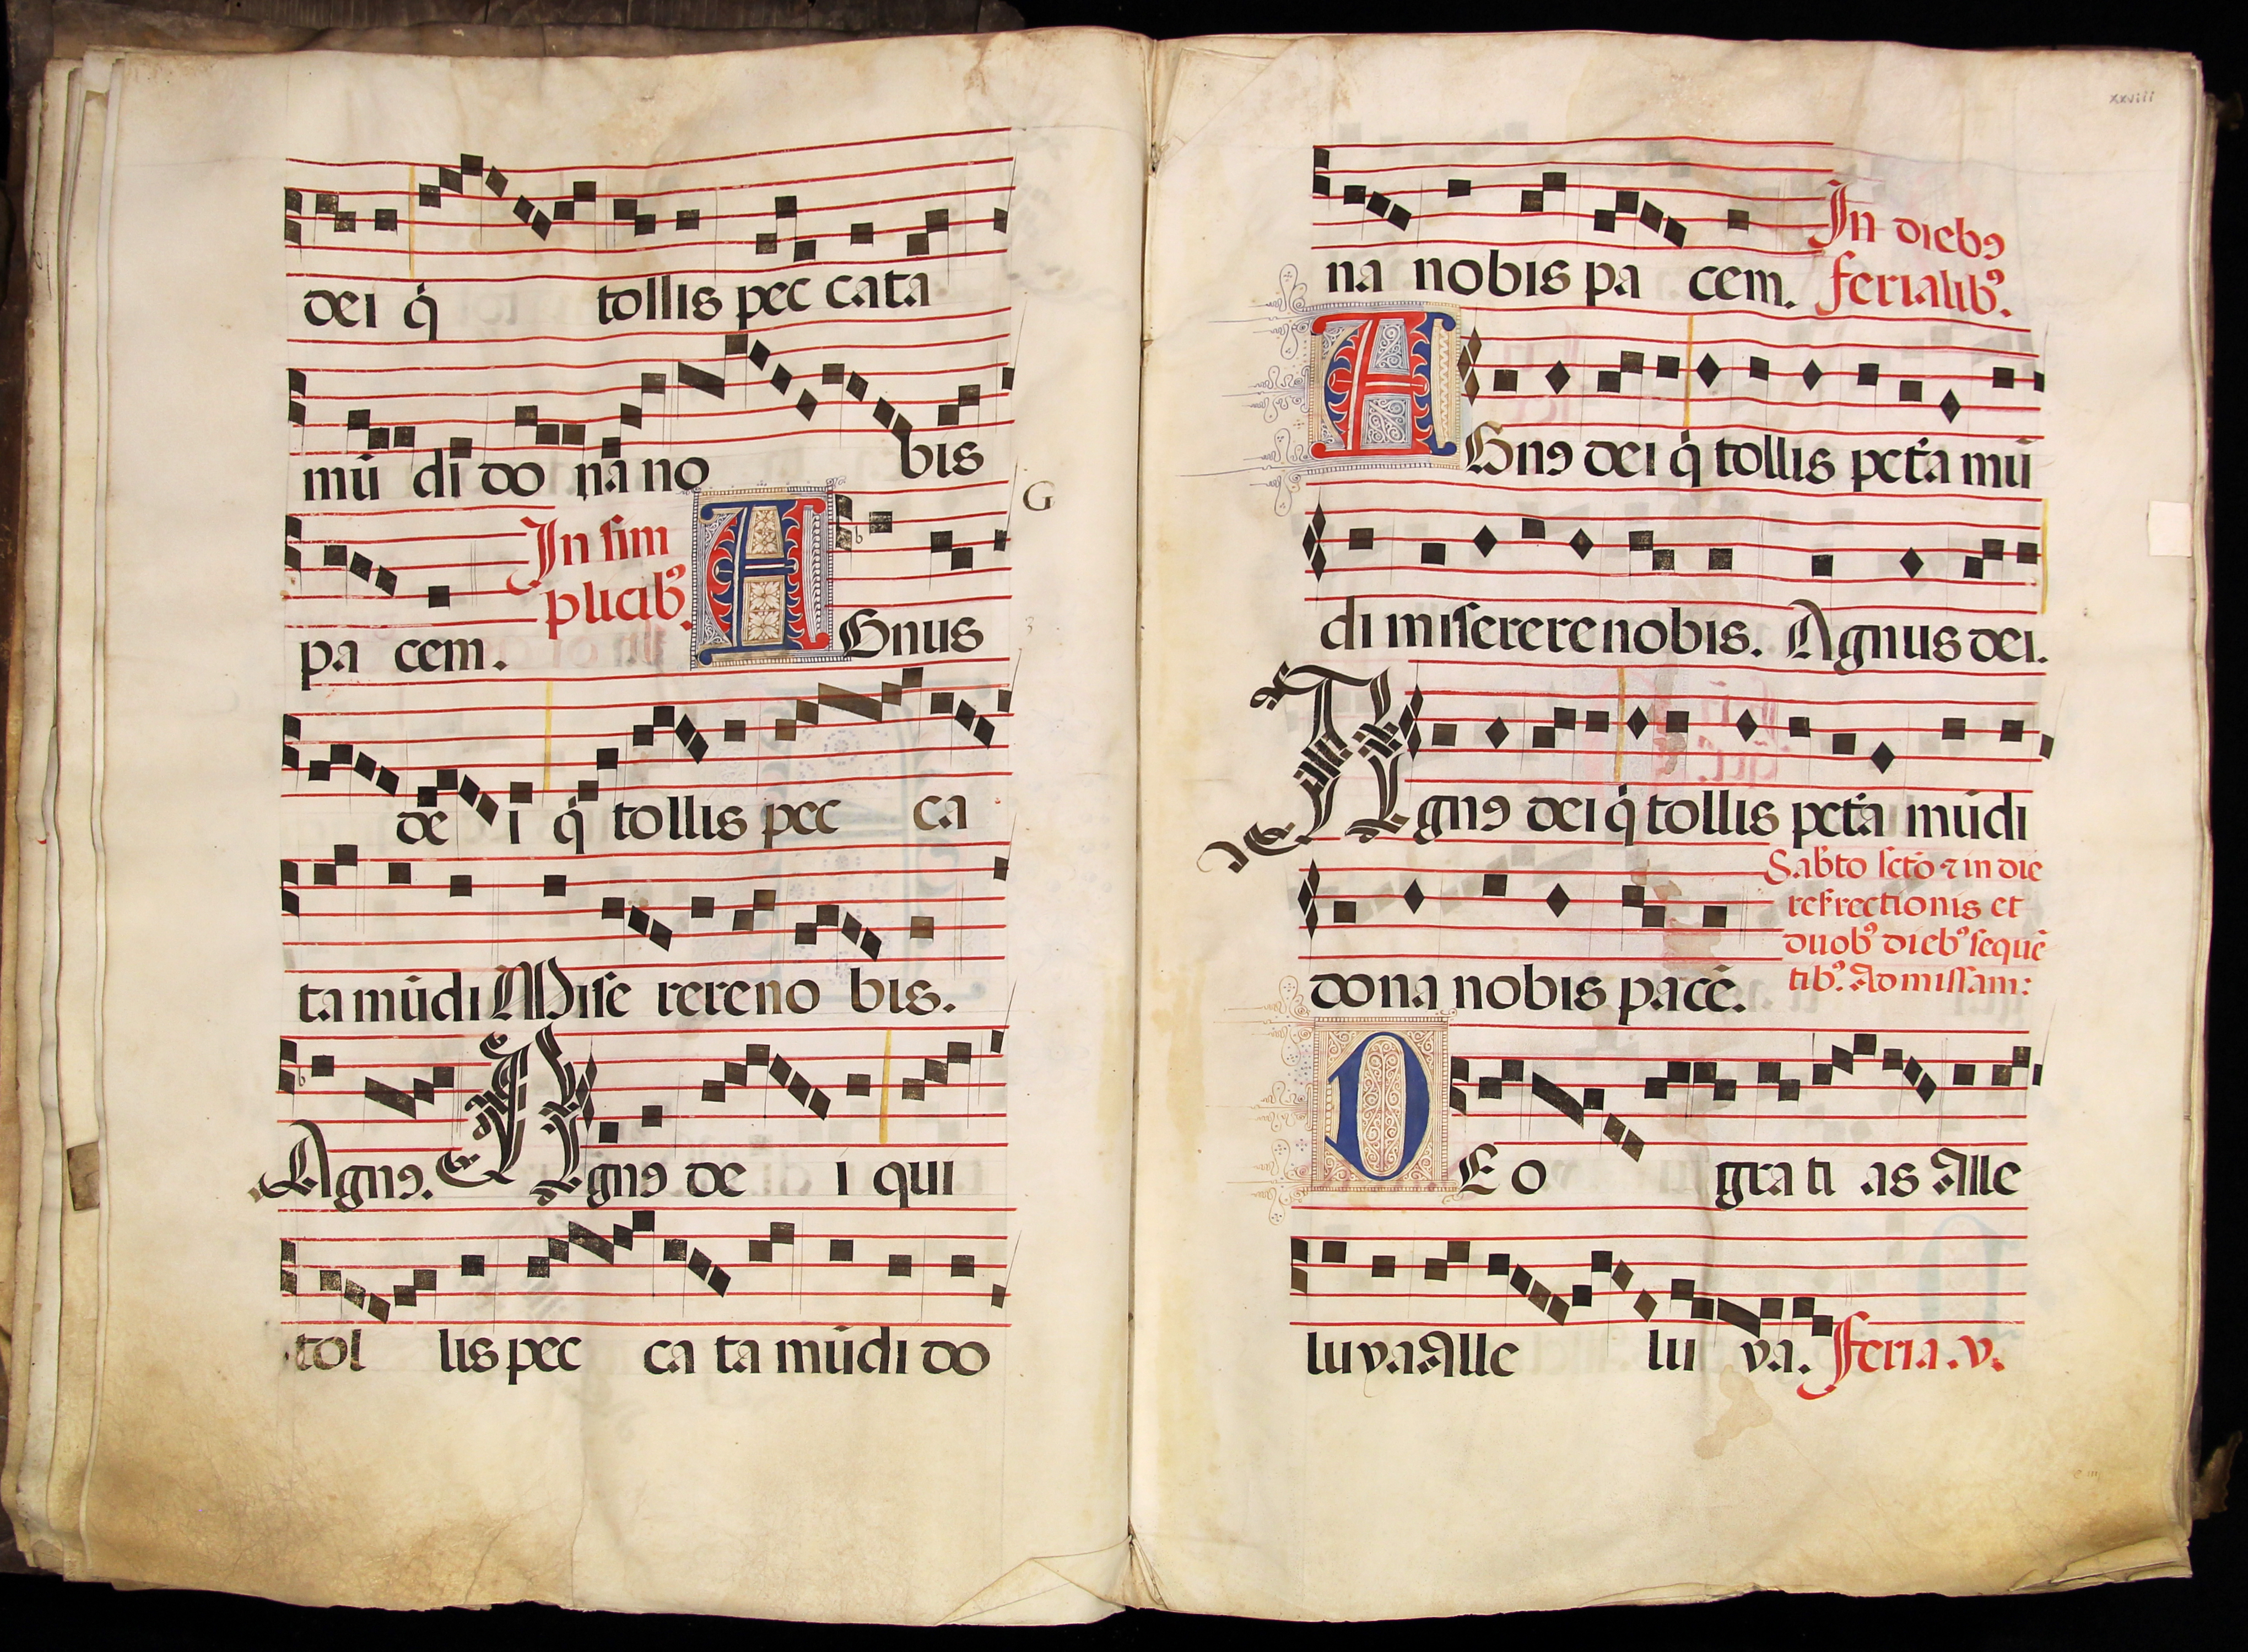 dei q̇ tollis pec cata
mū di do na no bis
In sim
plicibꝰ.
pa cem. AGnus
G
de i q̇ tollis pec ca
ta mūdi Miſe rere no bis.
Agnꝰ. Agnꝰ de i qui
tol lis pec ca ta mūdi do
xxviii
In diebꝰ
na nobis pa cem. ferialibꝰ.
AGnꝰ dei q̇ tollis pctā mū
di miſerere nobis. Agnus dei.
Agnꝰ dei q̇ tollis pctā mūdi
Sabto ſctō ⁊ in die
resrectionis et
duobꝰ diebꝰ ſequē
tibꝰ. Ad miſſam:
dona nobis pacē.
DEo gra ti as Alle
lu ya. Alle lu ya. Feria .v.